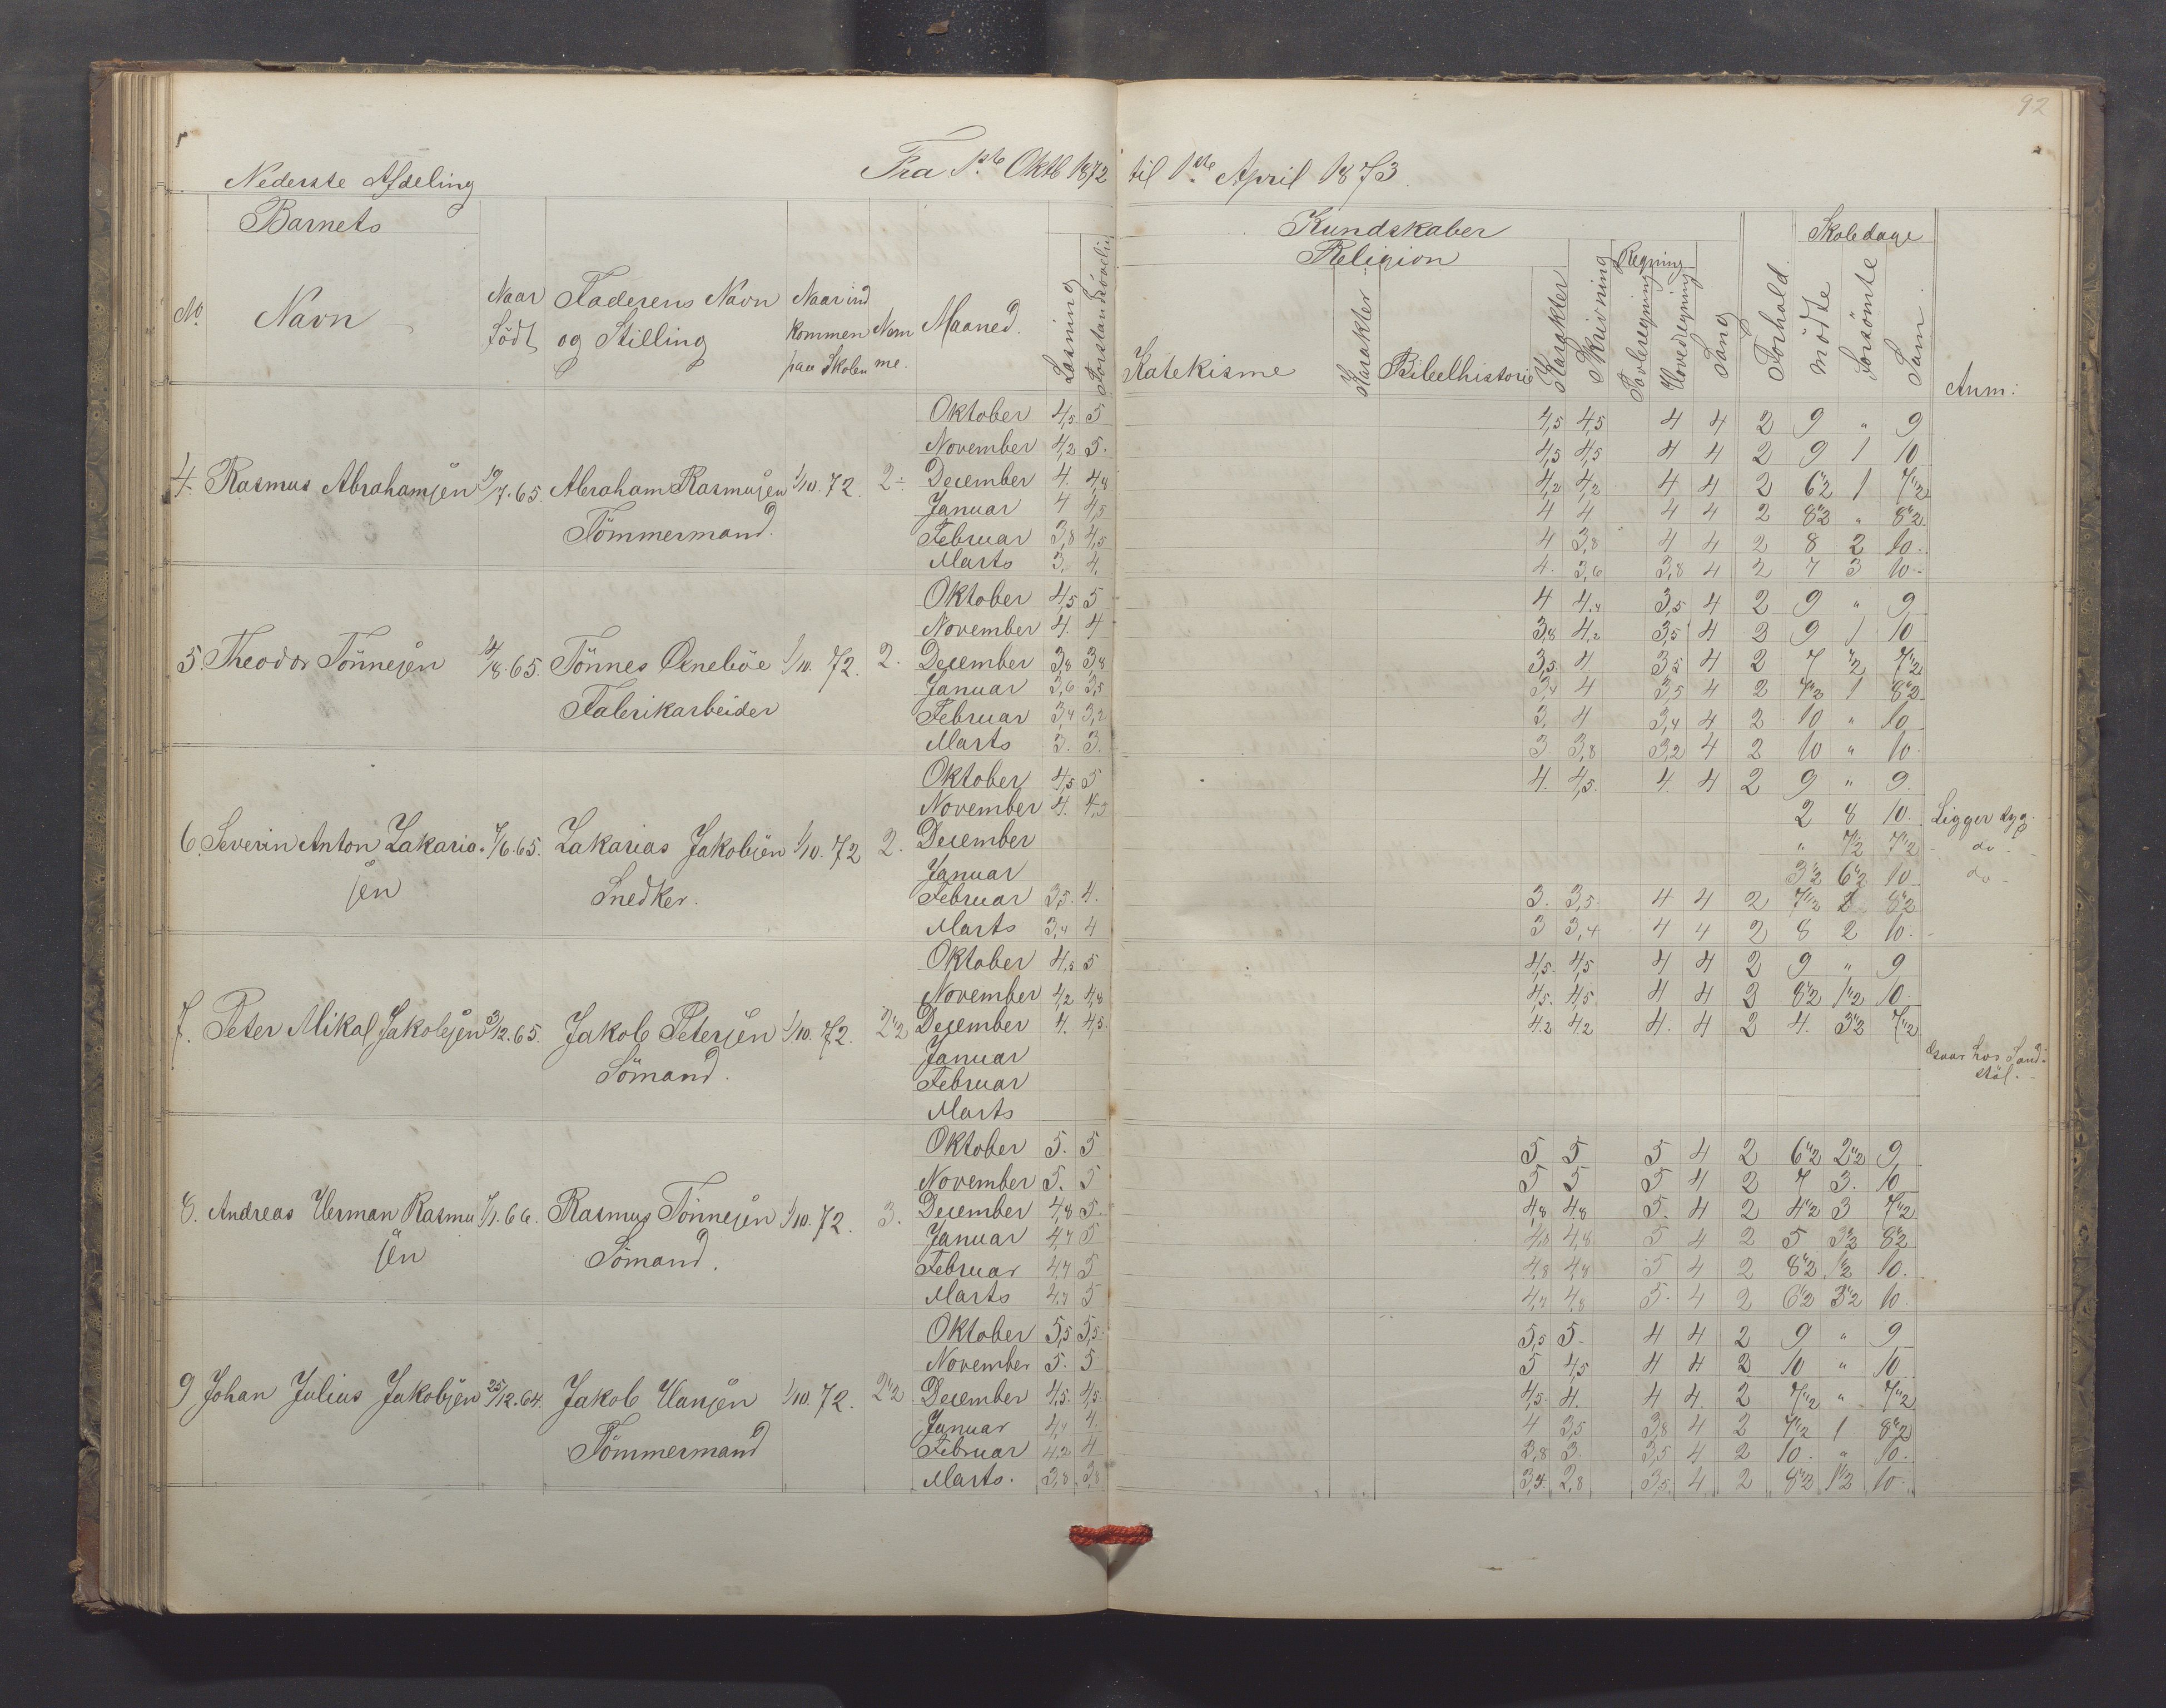 92
Nederste Afdeling
Fra 1ste Oktb 1872 til 1ste April 1873.
Barnets
Kundskaber
Skoledage
Religion
Regning
No. Navn Naar Födt Faderens Navn og Stilling Naar ind kommen paa Skolen Maaned. Læsning Katekisme Karakter Bibelhistorie Karakter Skrivning Tavleregning Hovedregning Sang Forhold. mödte forsömte Sum. Anm:
Oktober 4,5 5 4,5 4,5 4 4 2 9 " 9
November 4,2 5. 4,5 4,5 4 4 2 9 1 10
4. Rasmus Abrahamsen 19/7.65. Abraham Rasmusen 1/10.72. 2÷ December 4. 4,8 4,2 4,2 4 4 2 6"2 1 7"2
Januar 4 4,5 4 4 4 4 2 8"2 " 8"2
Tömmermand. Februar 3,8 4,5 4 3,8 4 4 2 8 2 10.
Marts 3. 4. 4. 3,6 3,8 4 2 7 3 10-
Oktober 4,5 5 4 4,4 3,5 4 2 9 " 9
November 4. 4 3,8 4,2 3,5 4 2 9 1 10
5. Theodor Tönnesen /8.65. Tönnes 1/10.72. 2. December 3,8 3,8 3,5 4. 3,5 4 2 7 "2 7"2
Januar 3,6 3,5 3,4 4 3,5 4 2 7"2 1 8"2
Fabrikarbeider Februar 3,4 3,2 3. 4 3,4 4 2 10 " 10
Marts 3. 3. 3 3,8 3,2 4 2 10 " 10.
Oktober 4,5 5 4. 4,5. 4. 4 2 9 " 9.
November 4. 4,5 2 8 10. Ligger syg.
6. Severin Anton Zakaria- 7/6.65. Zakarias Jakobsen 1/10.72 2. December " 7"2 7"2 do
sen Januar 3"2 6"2 10 do
Snedker. Februar 3,5. 4. 3. 3,5 4 4 2 7"2 1 8"2
Marts 3,4 4 3 3,4 4 4 2 8 2 10.
Oktober 4,5 5 4,5. 4,5 4 4 2 9 " 9
November 4,2 4,8 4,5. 4,5 4 4 2 8"2 1"2 10
7. Peter Mikal Jakobsen 3/12.65. Jakob Petersen 1/10.72. 2"2 December 4. 4,5 4,2 4,2 4. 4 2 4. 3"2 7"2
Januar Gaar hos Sand-
Sömand. Februar stöl.
Marts
Oktober 5. 5 5 5 5 4 2 6"2 2"2 9
November 5. 5 5 5 5 4 2 7 3. 10
8. Andreas Herman Rasmu 7/1.66. Rasmus Tönnesen 1/10.72. 3. December 4,8 5. 4,8 4,8 5. 4 2 4"2 3 7"2
sen Januar 4,7 5 4,8 4,8 5 4 2 5 3"2 8"2
Sömand. Februar 4,7 5 4,8 4,8 5 4 2 8"2 1"2 10.
Marts 4,7 5 4,7 4,8 5. 4 2 6"2 3"2 10
Oktober 5,5 5,5 5,5 5. 4 4 2 9 " 9
November 5. 5 5 4,5 4 4 2 10 " 10
9 Johan Julius Jakobsen 25/12.64. Jakob Hansen 1/10.72. 2"2 December 4,5. 4,5. 4,5. 4. 4 4. 2 7"2 " 7"2
Januar 4,4 4. 4 3,5 3,8 4 2 7"2 1 8"2
Tömmermand Februar 4,2 4 3,8 3. 3,5 4 2 10. " 10.
Marts. 3,8 3,8 3,5. 2,8 3,5. 4 2 8"2 1"2 10.